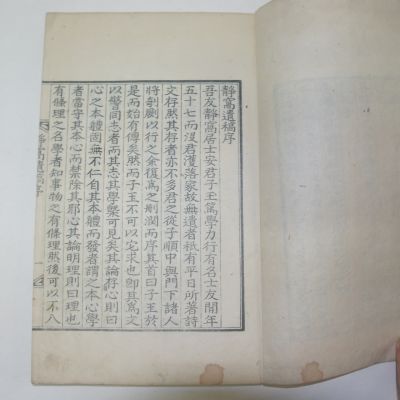 靜窩遺稿序
吾友靜窩居士安君子王篤學力行有名士友間年
五十七而沒君濩落家故無遺者秖有平日所著詩
文存然其存者亦不多君之從子順中與門下諸人
將剞劂以行之余復爲之刪潤而序其首曰子王於
是而始有傳矣然而子王不可以它求也卽其爲文
以警同志者而其志其學槩可見矣其論存心則曰
心之本體固無不仁自其本體而發者謂之本心學
者當守其本心而禁除其邪心其論明理則曰理也
有條理之名學者知事物之有條理然後可以不入
靜窩遺稿序
一